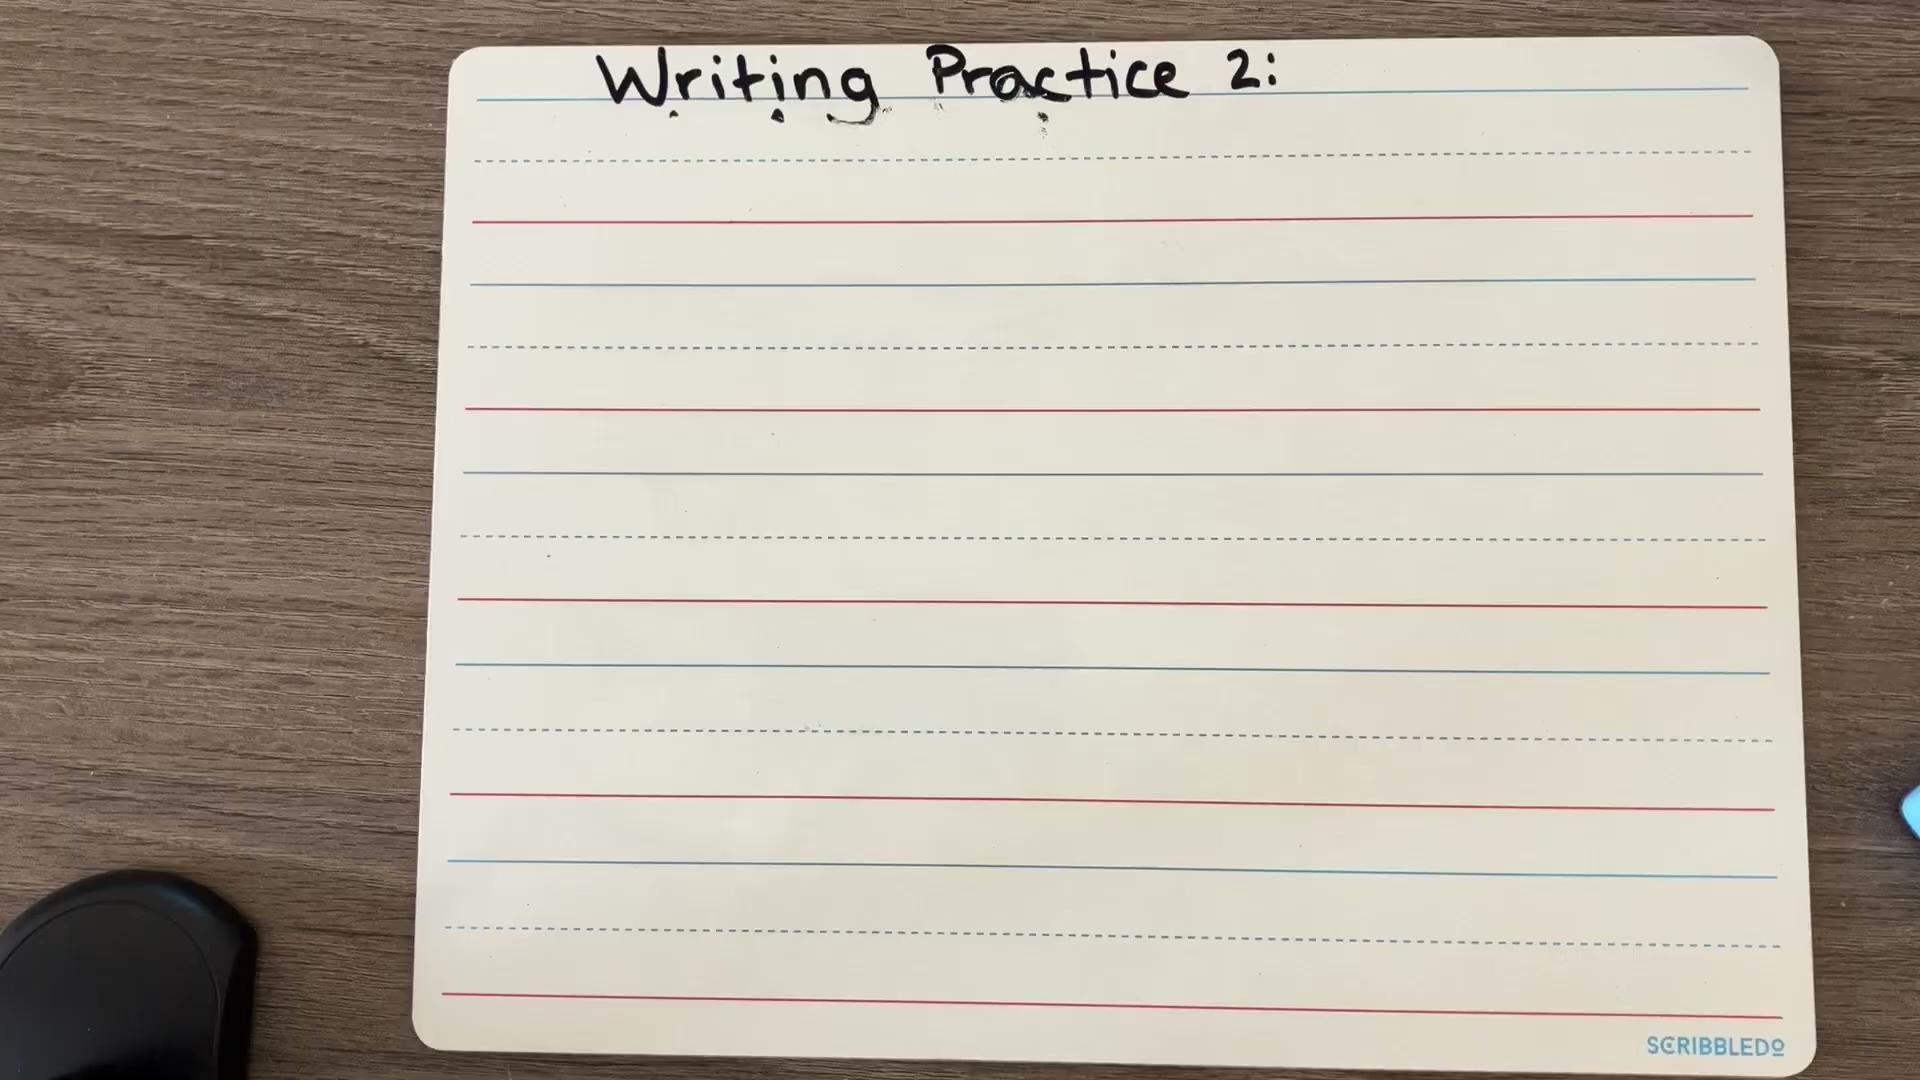 Writing Practice 2:
SCRIBBLEDO